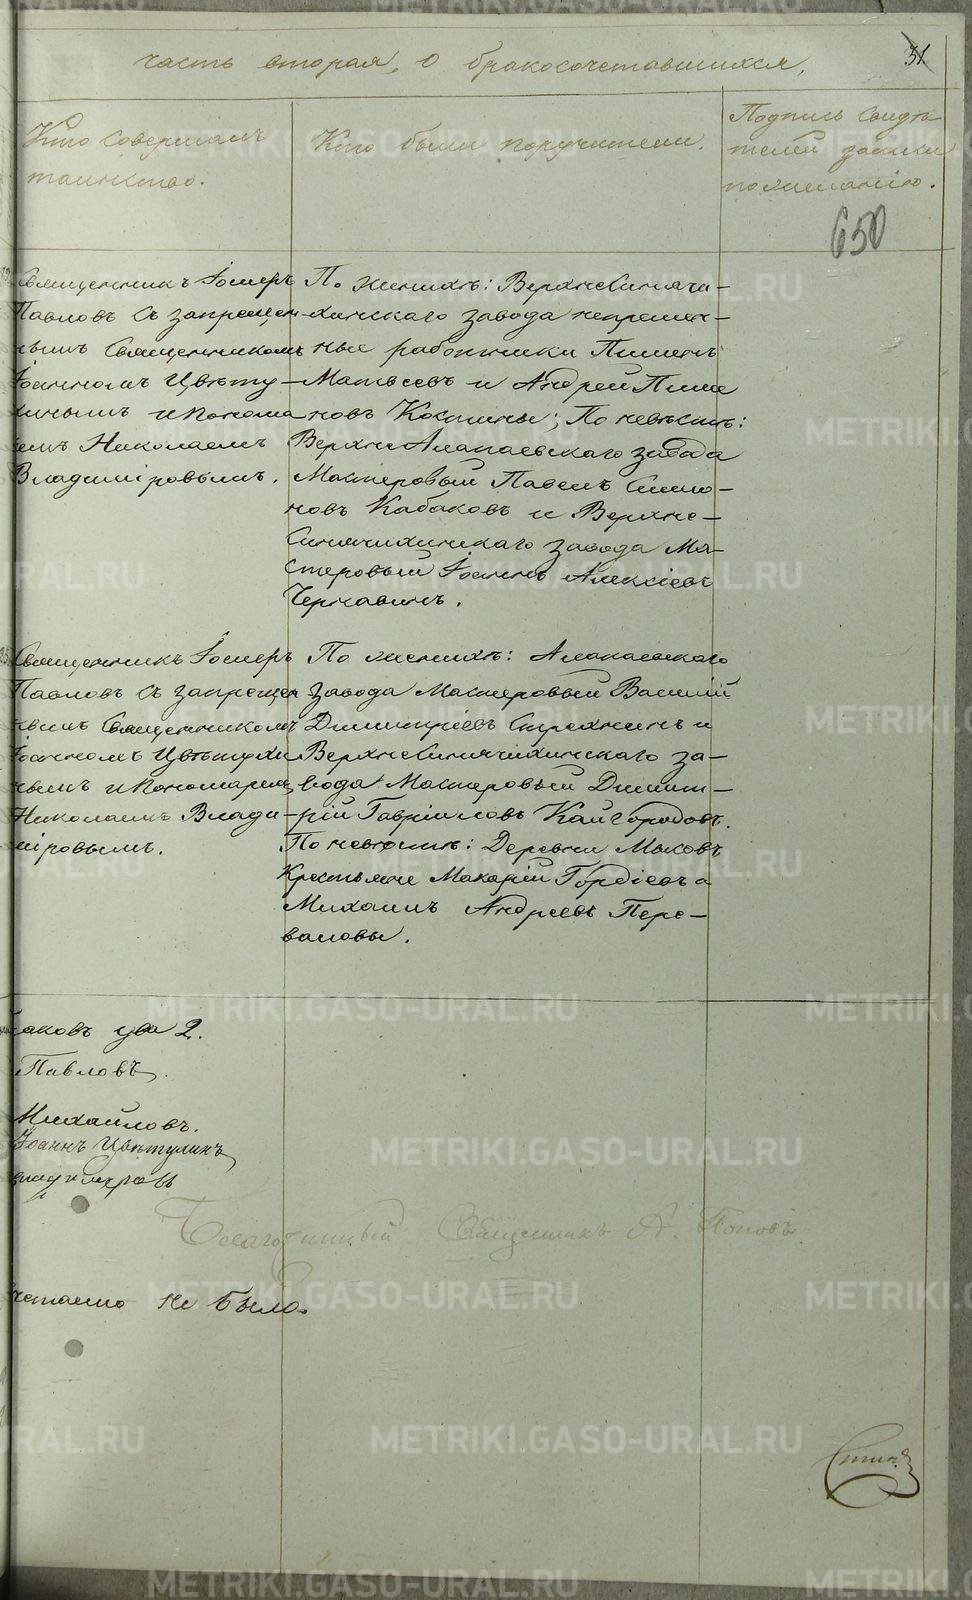 часть вторая, о бракосочетавшихся,
31
Кто совершалъ
таинство.
Кто были поручители.
Подпись свидѣ-
телей записи
по желанію.
650
Священникъ Іосифъ
Павловъ съ запрещен-
нымъ Священникомъ
Іоанномъ Цвѣту-
хинымъ и понома
ремъ Николаемъ
Владиміровымъ.
По женихѣ: Верхнесинячи-
хинскаго завода непремен-
ные работники Пименъ
Матвеевъ и Андрей Пиме
новъ Костины; По невѣстѣ:
Верхне Алапаевскаго завода
Мастеровый Павелъ Симо-
новъ Кабаковъ и Верхне-
Синячихинскаго завода Ма-
стеровый Іоаннъ Алексіевъ
Черкавинъ.
Священникъ Іосифъ
Павловъ съ запрещен
нымъ Священникомъ
Іоанномъ Цвѣтухи
нымъ и пономаремъ
Николаемъ Влади-
міровымъ.
По женихѣ: Алапаевскаго
завода Мастеровый Василій
Димитріевъ Стрежнинъ и
Верхнесинячихинскаго за-
вода Мастеровый Димит-
рій Гавріиловъ Кайгородовъ.
По невѣстѣ: Деревни Маковъ
Крестьяне Макарій Гордіевъ и
Михаилъ Андреевъ Пере-
валовы.
браковъ два 2.
Павловъ.
Михайловъ.
Іоаннъ Цвѣтухинъ
Владиміровъ
Благочинный Священникъ А. Поповъ.
считано не было.
METRIKI.GASO-URAL.RU